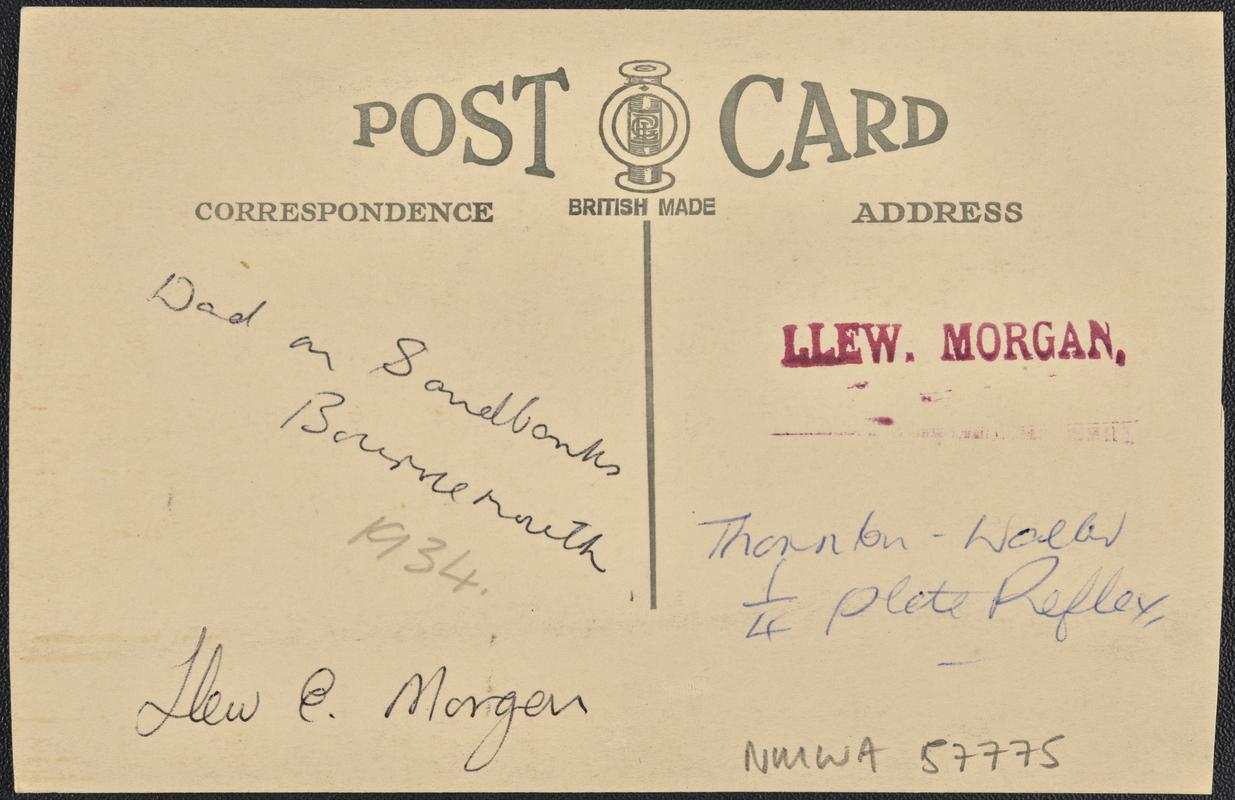 POST CARD
CORRESPONDENCE
BRITISH MADE
ADDRESS
Dad on Sandbanks
Bournemouth
1934.
Llew E. Morgan
LLEW. MORGAN,
Thornton-
1/4 plate Reflex,
NMWA 57775